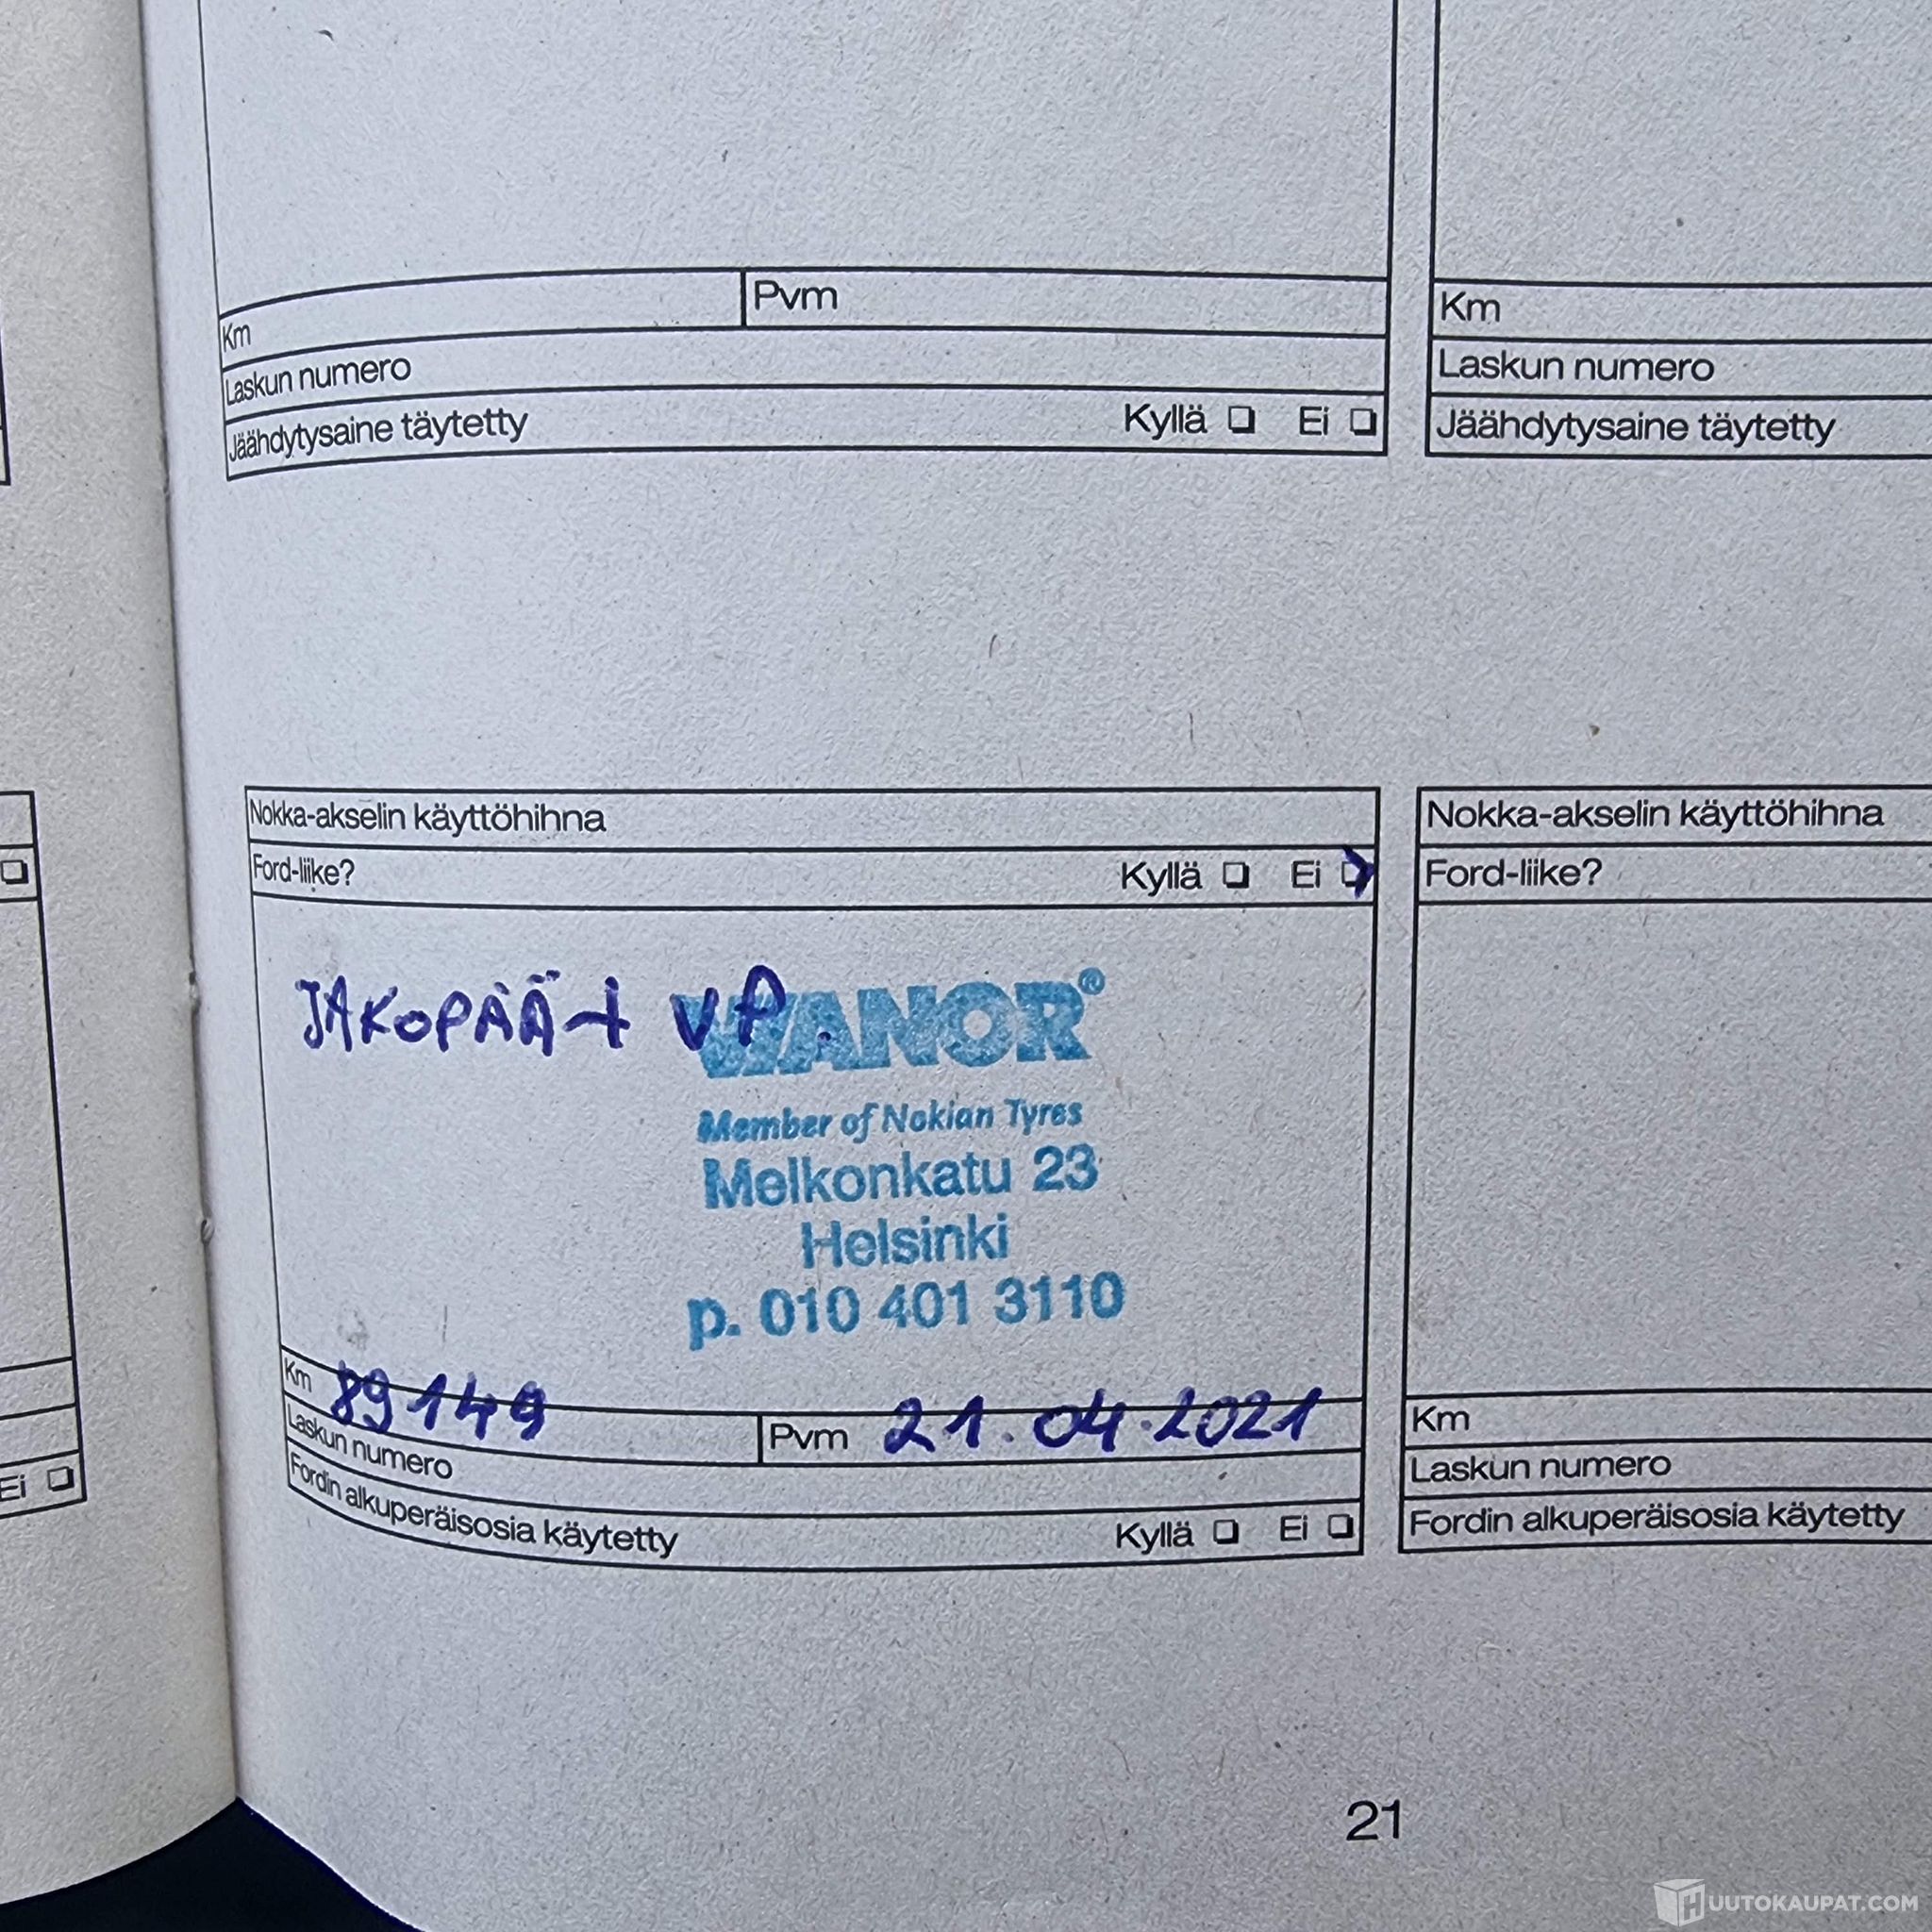 Km
Pvm
Laskun numero
Jäähdytysaine täytetty Kyllä Ei
Km
Laskun numero
Jäähdytysaine täytetty
Nokka-akselin käyttöhihna
Ford-liike? Kyllä Ei
JAKOPÄÄ + VP.
VIANOR®
Member of Nokian Tyres
Melkonkatu 23
Helsinki
p. 010 401 3110
Km 89149
Pvm 21.04.2021
Laskun numero
Fordin alkuperäisosia käytetty Kyllä Ei
Nokka-akselin käyttöhihna
Ford-liike?
Km
Laskun numero
Fordin alkuperäisosia käytetty
Ei
21
HUUTOKAUPAT.COM